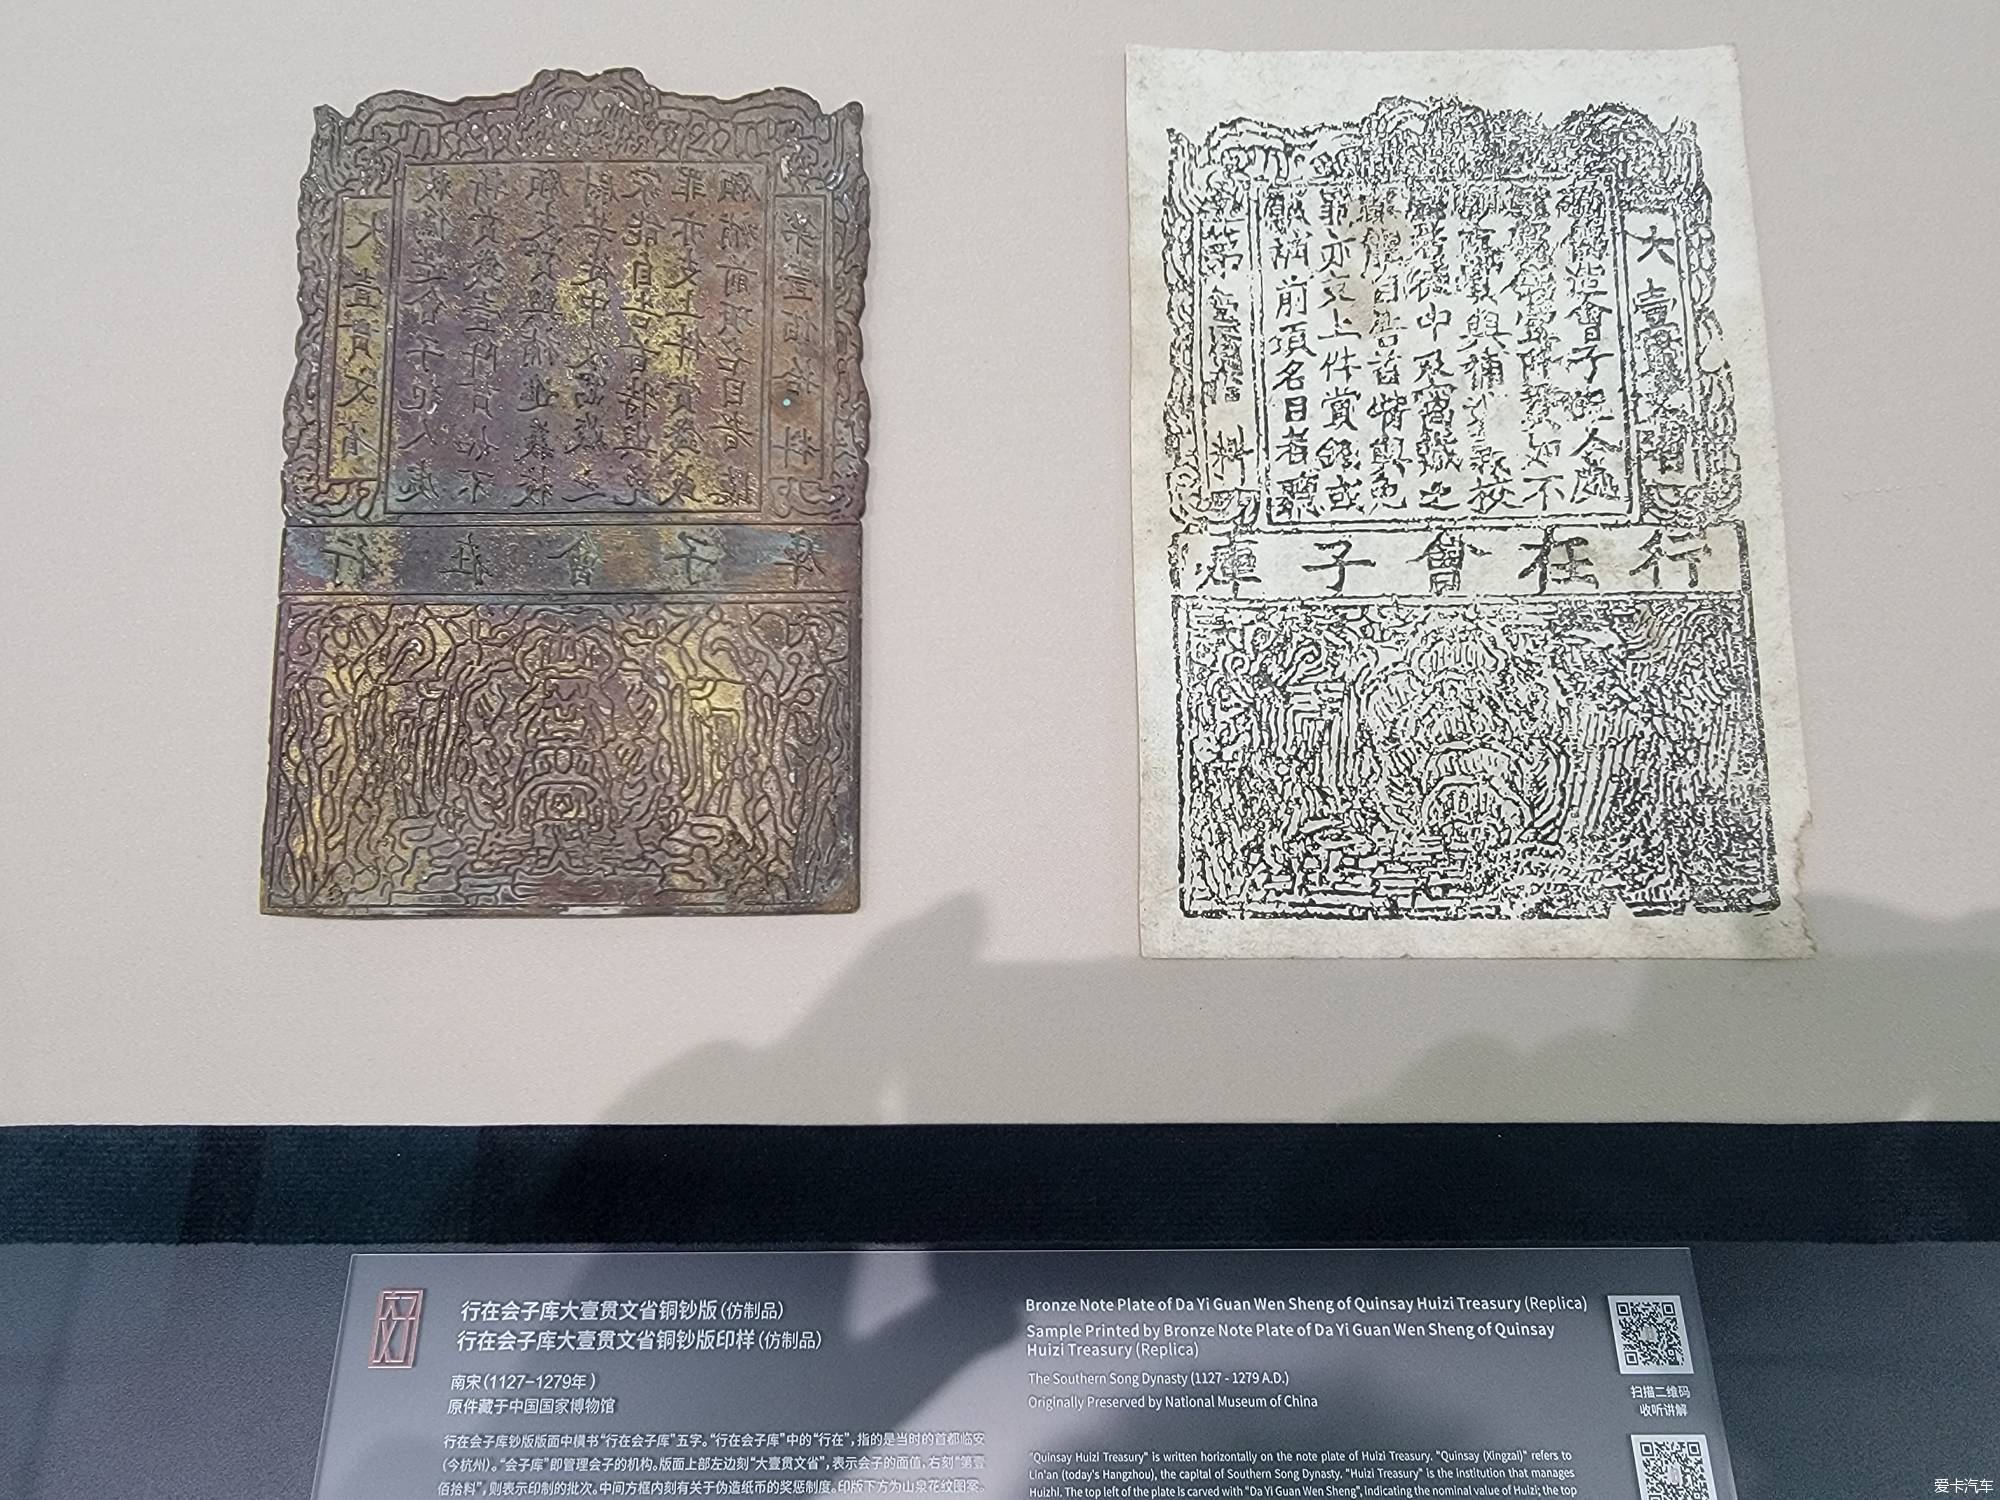 大壹貫文省
敕偽造會子犯人處
斬賞錢壹阡貫如不
願支賞與補進義校
尉若徒中及窩藏之
家能自告首特與免
罪亦支上件賞錢或
願補前項名目者聽
第壹佰拾料
行在會子庫
大壹貫文省
偽造會子犯人處
賞錢壹阡貫如不
願支賞與補進義校
尉若徒中及窩藏之
家能自告首特與免
罪亦支上件賞錢或
願補前項名目者聽
第壹佰拾料
行在會子庫
行在会子库大壹贯文省铜钞版(仿制品)
行在会子库大壹贯文省铜钞版印样(仿制品)
南宋(1127-1279年)
原件藏于中国国家博物馆
行在会子库钞版版面中横书“行在会子库”五字。“行在会子库”中的“行在”,指的是当时的首都临安
(今杭州)。“会子库”即管理会子的机构。版面上部左边刻“大壹贯文省”,表示会子的面值,右刻“第壹
佰拾料”,则表示印制的批次。中间方框内刻有关于伪造纸币的奖惩制度。印版下方为山泉花纹图案。
Bronze Note Plate of Da Yi Guan Wen Sheng of Quinsay Huizi Treasury (Replica)
Sample Printed by Bronze Note Plate of Da Yi Guan Wen Sheng of Quinsay
Huizi Treasury (Replica)
The Southern Song Dynasty (1127 - 1279 A.D.)
Originally Preserved by National Museum of China
"Quinsay Huizi Treasury" is written horizontally on the note plate of Huizi Treasury. "Quinsay (Xingzai)" refers to
Lin'an (today's Hangzhou), the capital of Southern Song Dynasty. "Huizi Treasury" is the institution that manages
Huizhi. The top left of the plate is carved with "Da Yi Guan Wen Sheng", indicating the nominal value of Huizi; the top
扫描二维码
收听讲解
爱卡汽车